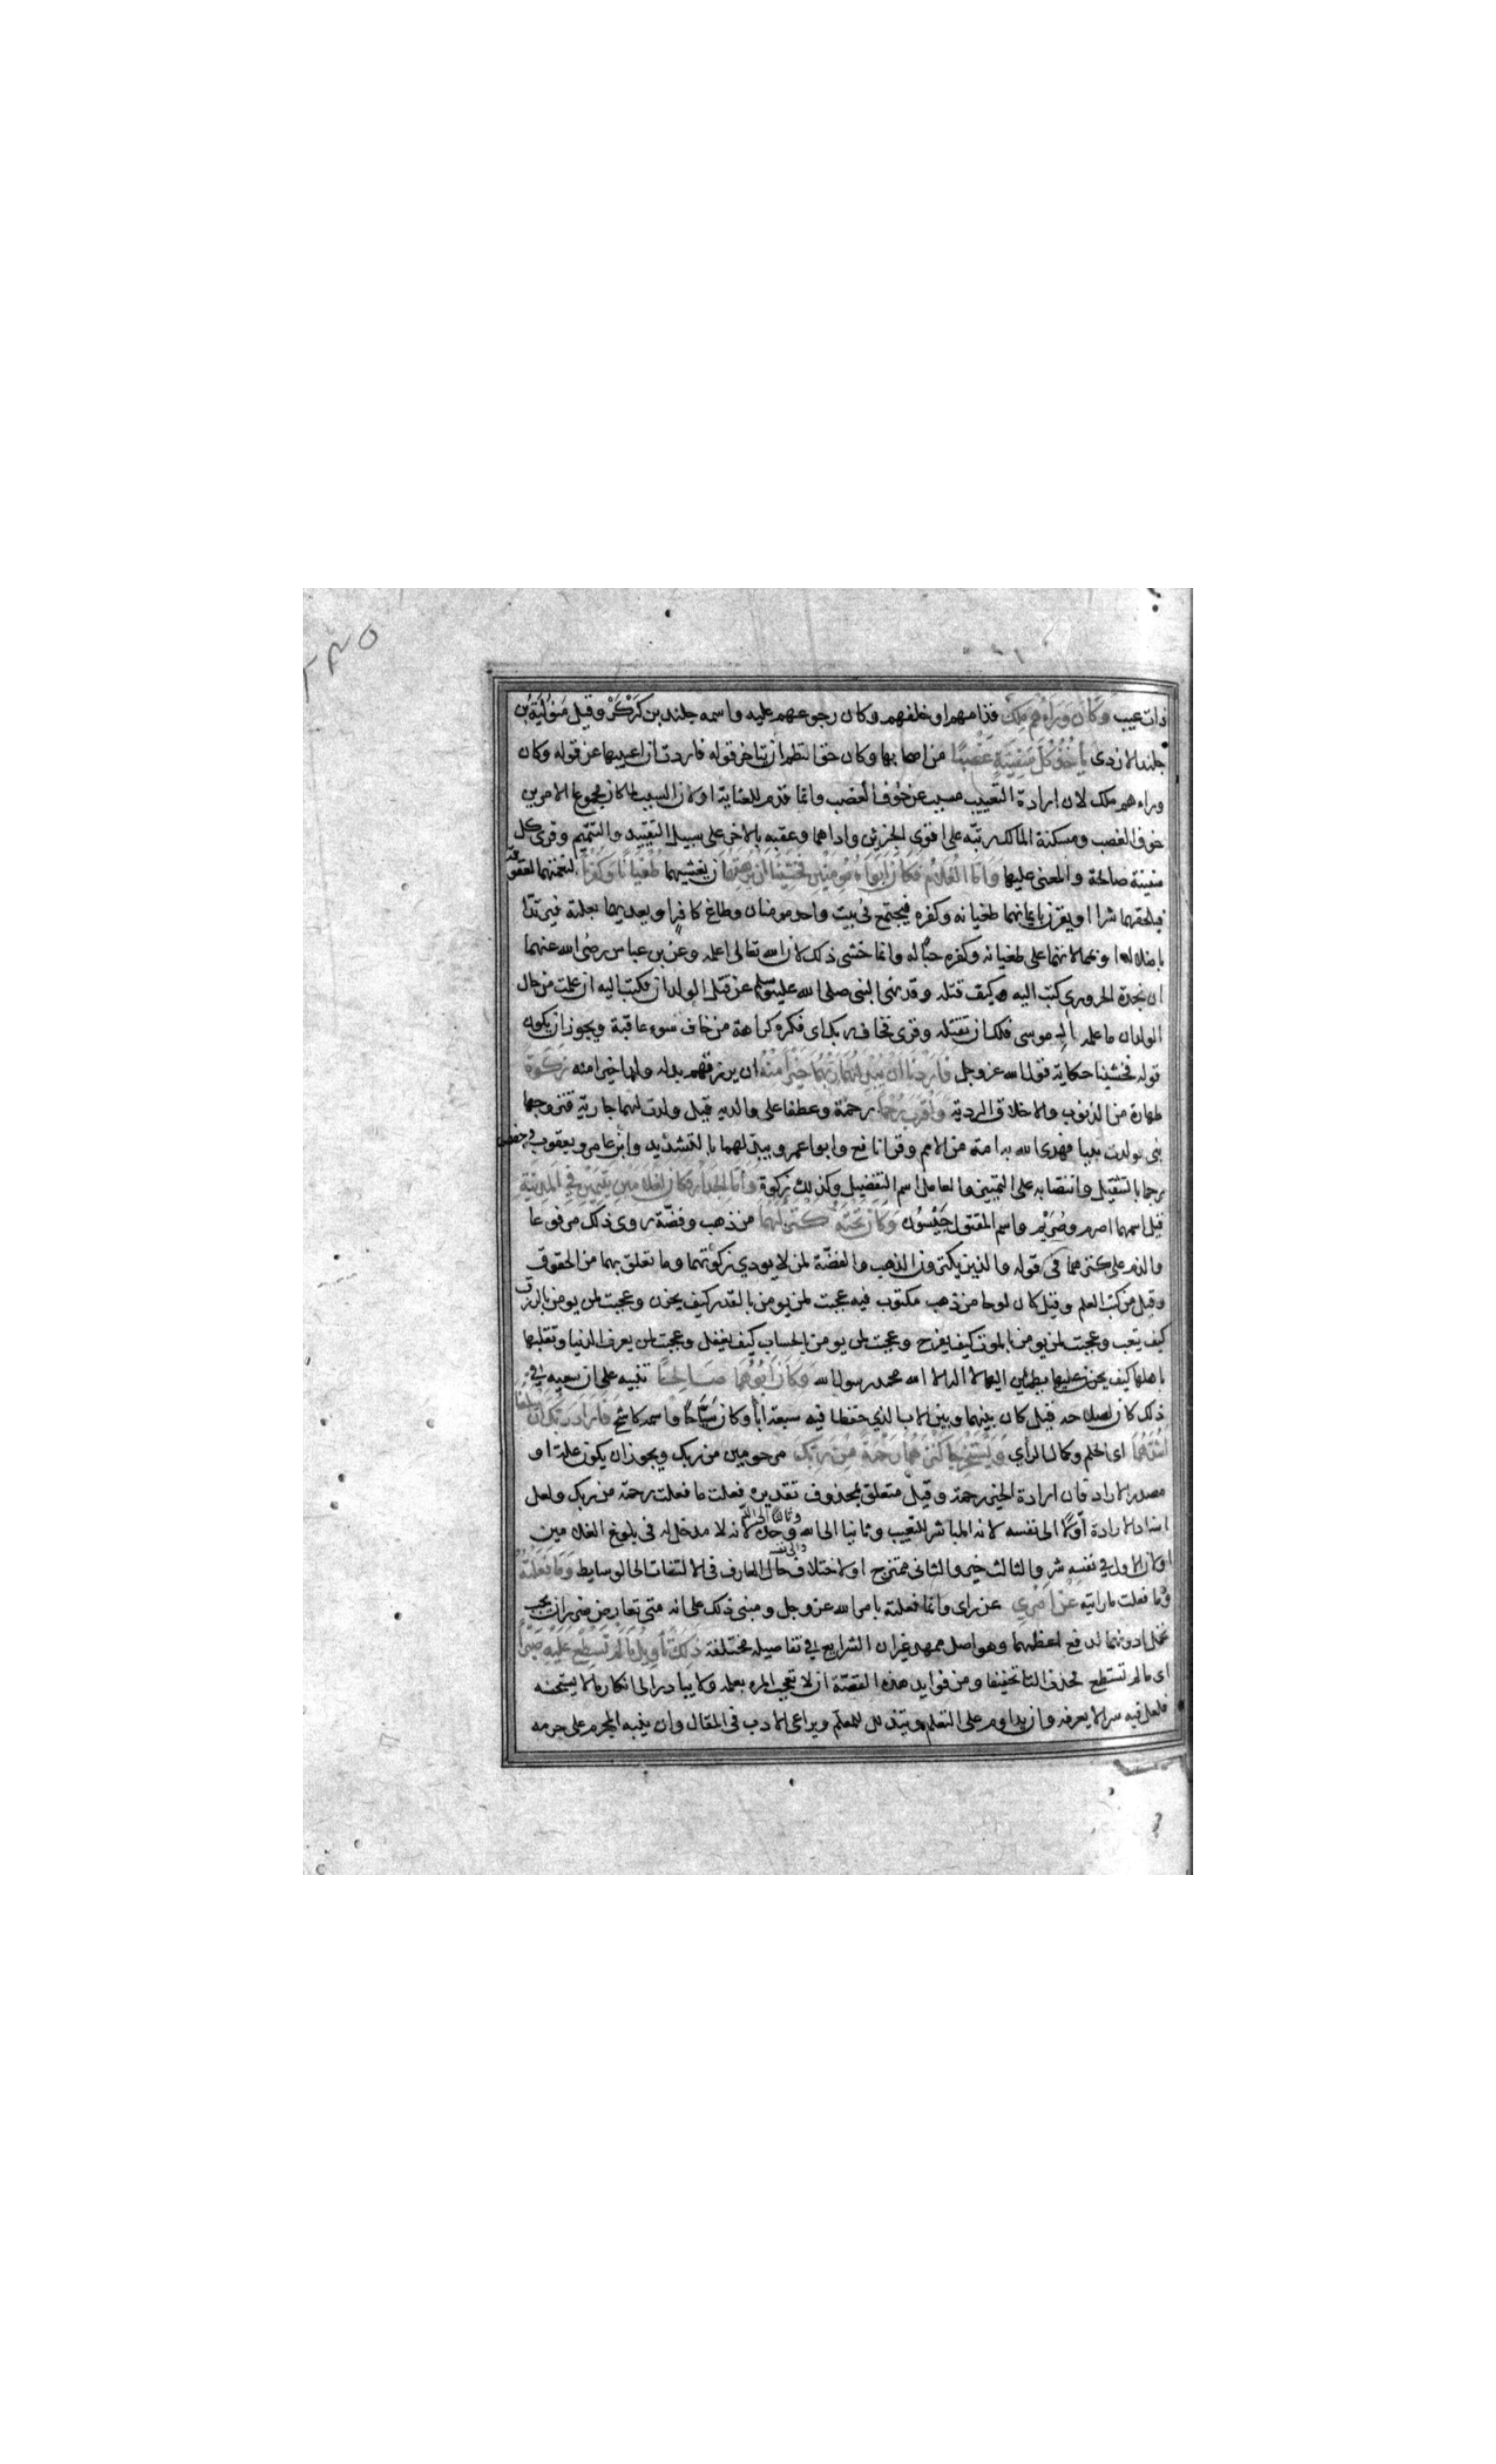 ذات عيب وَكَانَ وَرَاءَهُمْ مَلِكٌ قدامهم او خلفهم وكان رجوعهم عليه واسمه جلندبن كَرْكَرْ وقيل مَنوُلَة بُن
جلند الازدى يَأخُذُ كُلَّ سَفِينَةٍ غَصْبًا من اصحابها وكان حق النظم ان يتاخر قوله فاردت ان اعيبها عن قوله وكان
وراءهم ملك لان ارادة التعييب مسبب عن خوف الغصب وانما قدم للعناية او لان السبب لما كان مجموع الامرين
خوف الغصب ومسكنة الملاك رتبه على اقوى الجزئين وادعاهما وعقبه بالاخر على سبيل التقييد والتتميم وقرى كل
سفينة صالحة والمعنى عليها وَاَمَّا الْغُلَامُ فَكَانَ اَبَوَاهُ مُومِنَيْنِ فَخَشِينَا اَنْ يُرْهِقَهُمَا ان يغشيهما طُغْيَانًا وَكُفْرًا لنعمتهما لعقوقه
فيلحقهما شرا او يقرن بايمانهما طغيانه وكفره فيجتمع فى بيت واحد مومنان وطاغ كافر او يعديهما بعلته فيرتدا
باضلاله او بممالاتهما على طغيانه وكفره حبا له وانما خشى ذلك لان الله تعالى اعلمه وعن بن عباس رضى الله عنهما
ان نجدة الحرورى كتب اليه كيف قتله وقد نهى النبى صلى الله عليه وسلم عن قتل الولدان فكتب اليه ان علمت من حال
الولدان ما علمه موسى فلك ان تقتله وقرى فخاف ربك اى فكره كراهة من خاف سوء عاقبة ويجوز ان يكون
قوله فخشينا حكاية قول الله عز وجل فَاَرَدْنَا اَنْ يُبْدِلَهُمَا رَبُّهُمَا خَيْرًا مِنْهُ ان يرزقهم بدله ولدا خيرا منه زَكٰوةً
طهارة من الذنوب والاخلاق الردية وَاَقْرَبَ رُحْمًا رحمة وعطفا على والديه قيل ولدت لهما جارية فتزوجها
نبى فولدت نبيا فهدى الله به امة من الامم وقرا نافع وابو عمرو يبدلهما بالتشديد وابن عامر ويعقوب
رحما بالتثقيل وانتصابه على التمييز والعامل اسم التفضيل وكذلك زكوة وَاَمَّا الْجِدَارُ فَكَانَ لِغُلَامَيْنِ يَتِيمَيْنِ فِي الْمَدِينَةِ
قيل اسمهما اصرم وصُرَيْم واسم المقتول جَيْسُون وَكَانَ تَحْتَهُ كَنْزٌ لَهُمَا من ذهب وفضة روى ذلك مرفوعا
والذم على كنزهما فى قوله والذين يكنزون الذهب والفضة لمن لا يودي زكوتهما وما تعلق بهما من الحقوق
وقيل من كتب العلم وقيل كان لوحا من ذهب مكتوب فيه عجبت لمن يومن بالقدر كيف يحزن وعجبت لمن يومن بالرزق
كيف يتعب وعجبت لمن يومن بالموت كيف يفرح وعجبت لمن يومن بالحساب كيف يغفل وعجبت لمن يعرف الدنيا وتقلبها
باهلها كيف يطمئن اليها لا اله الا الله محمد رسول الله وَكَانَ اَبُوهُمَا صَالِحًا تنبيه على ان سعيه في
ذلك كان لصلاحه قيل كان بينهما وبين الاب الذي حفظا فيه سبعة اباء وكان سَيَّاحًا واسمه كاشح فَاَرَادَ رَبُّكَ اَنْ يَبْلُغَا
اَشُدَّهُمَا اى الحلم وكمال الرأي وَيَسْتَخْرِجَا كَنْزَهُمَا رَحْمَةً مِنْ رَبِّكَ مرحومين من ربك ويجوز ان يكون علة او
مصدر الاراد فان ارادة الخير رحمة وقيل متعلق بمحذوف تقديره فعلت ما فعلت رحمة من ربك ولعل
اسناد الارادة أولا الى نفسه لانه المباشر للتعييب وثانيا الى الله والى نفسه وثالثا الى الله وحده لانه لا مدخل له فى بلوغ الغلامين
او لان الاول في نفسه شر والثالث خير والثانى ممتزج او لاختلاف حال العارف فى الالتفات الى الوسايط وَمَا فَعَلْتُهُ
وما فعلت ما رايته عَنْ اَمْرِي عن راى وانما فعلته بامر الله عز وجل ومبنى ذلك على انه متى تعارض ضرران يجب
تحمل ادونهما لدفع اعظمهما وهو اصل ممهد غير ان الشرايع في تفاصيله مختلفة ذٰلِكَ تَأوِيلُ مَا لَمْ تَسْطِعْ عَلَيْهِ صَبْرًا
اى ما لم تستطع فحذف التا تخفيفا ومن فوايد هذه القصة ان لا يعجب المرء بعلمه ولا يبادر الى انكار ما لا يستحسنه
فلعل فيه سرا لا يعرفه وان يداوم على التعلم ويتذلل للمعلم ويراعى الادب فى المقال وان ينبه المجرم على جرمه